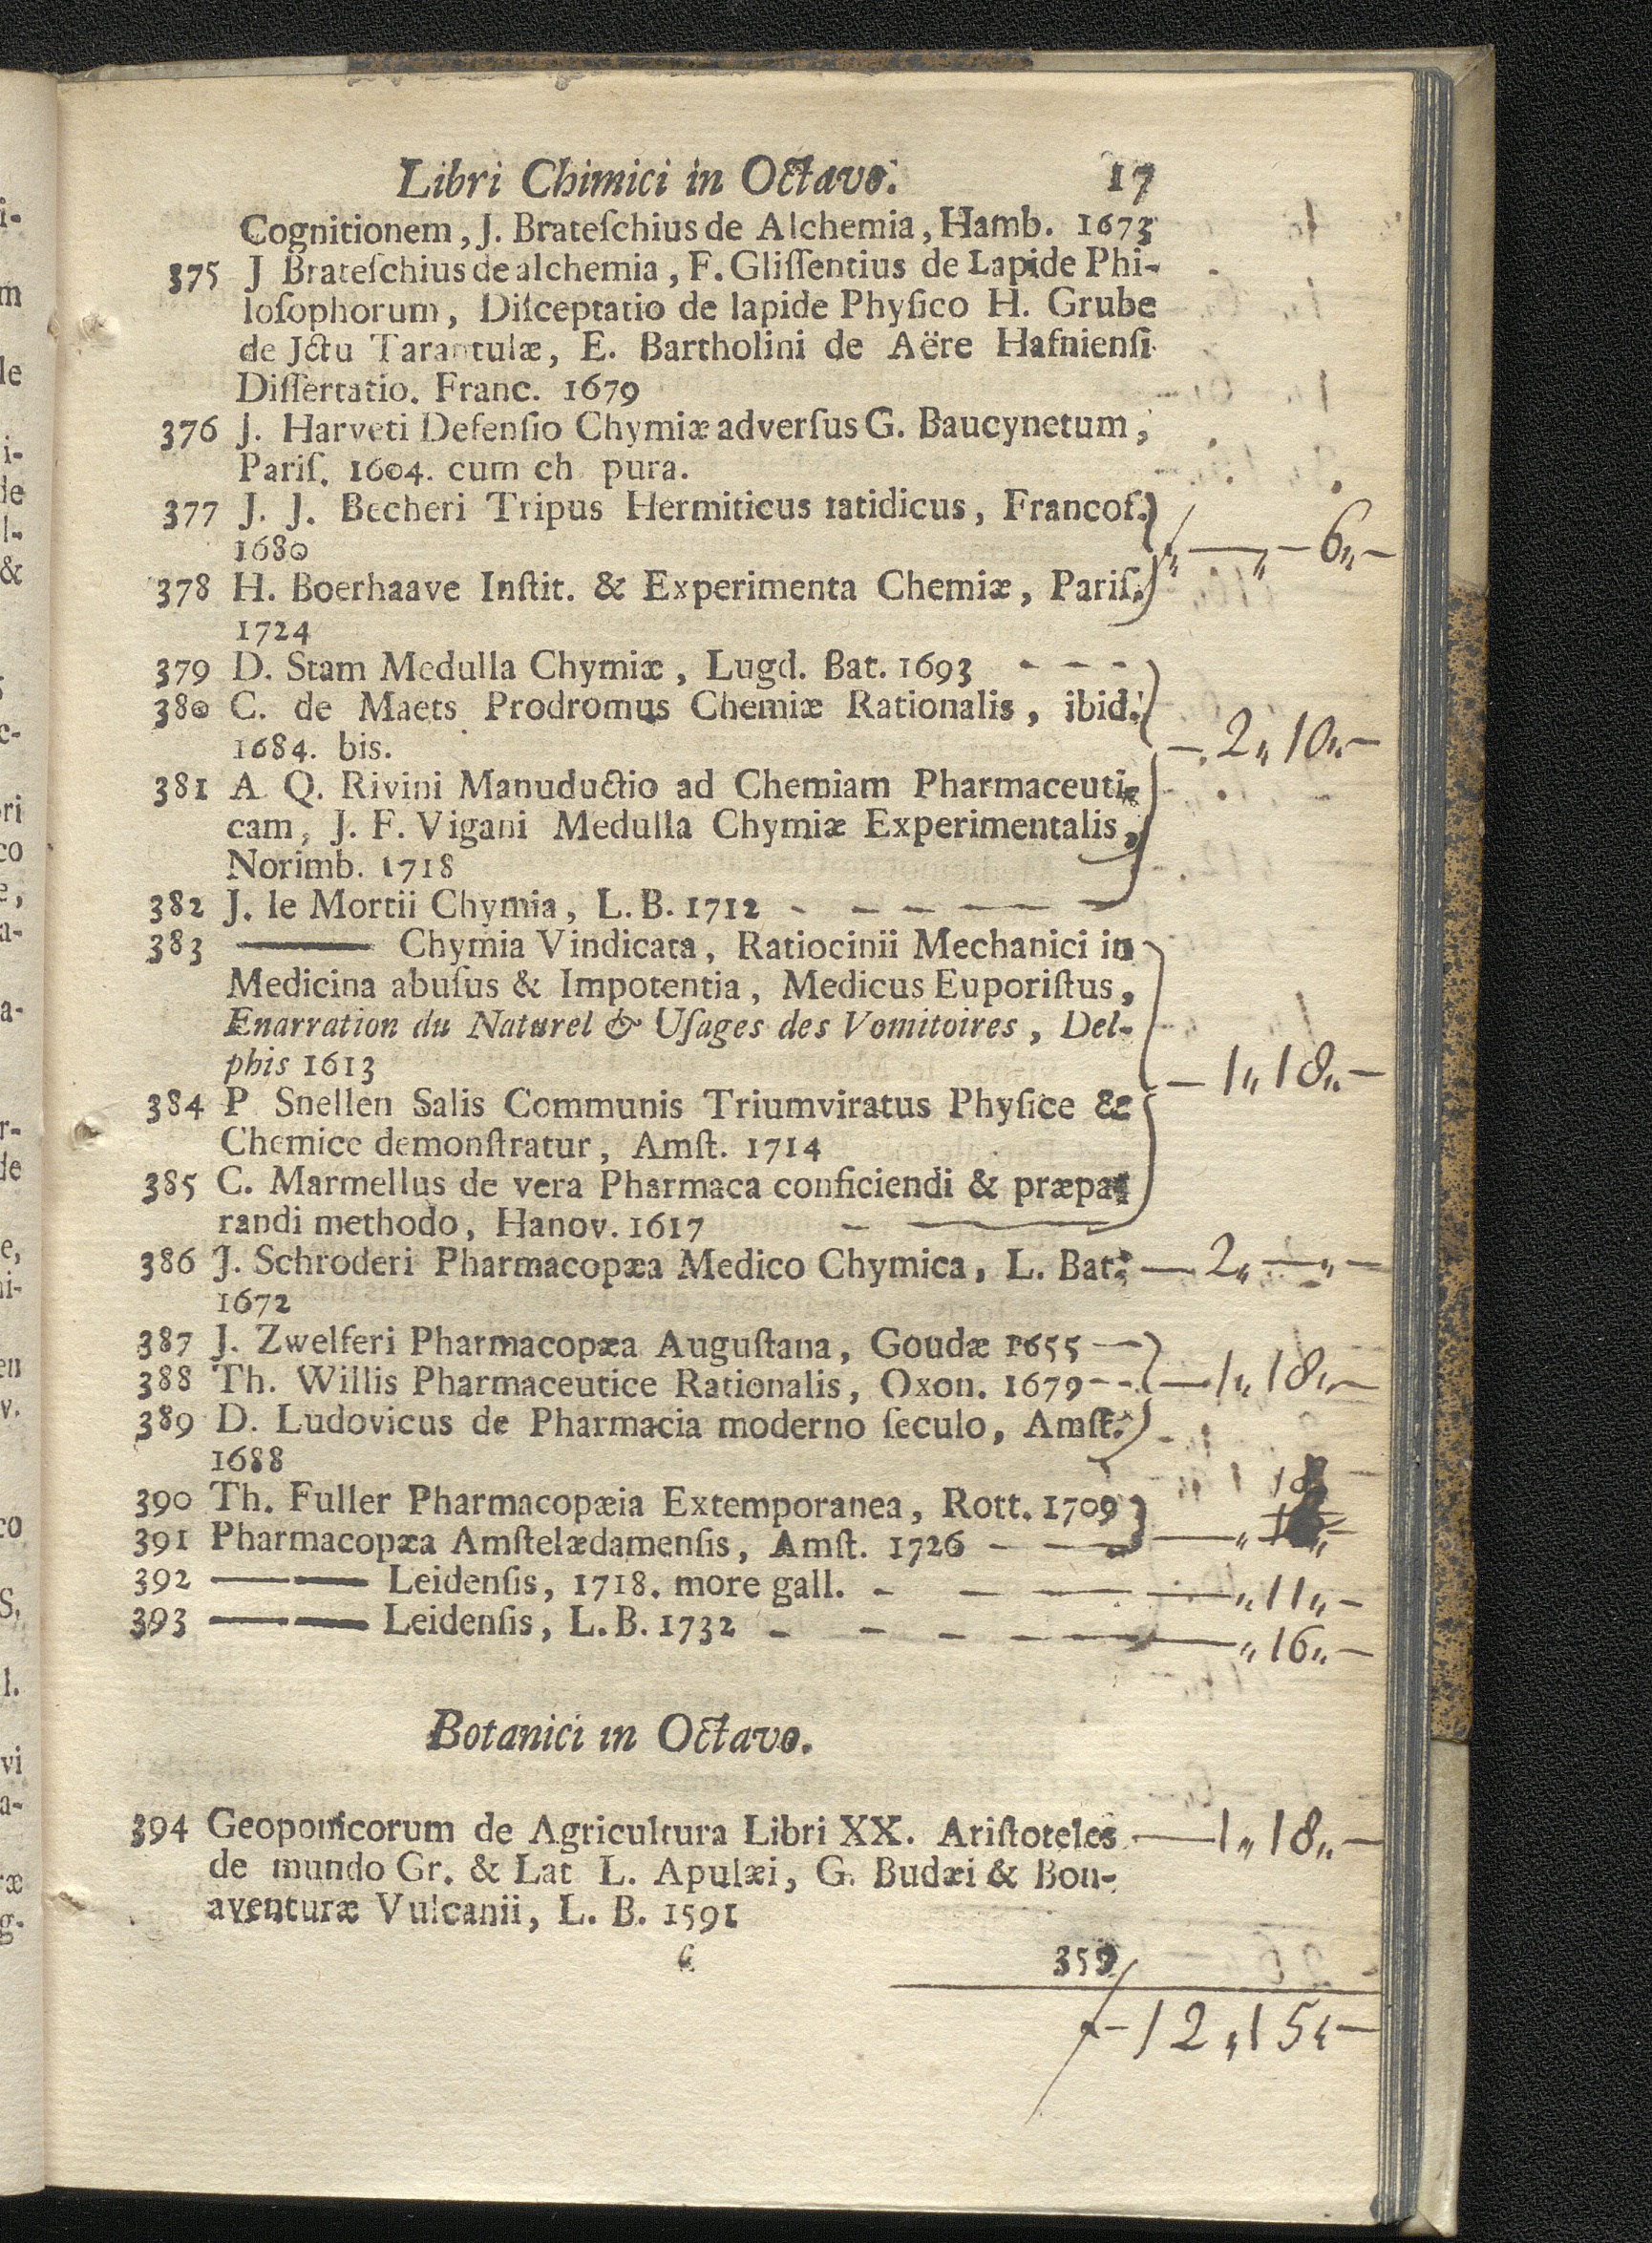 Libri Chimici in Octavo. 17
Cognitionem, J. Brateſchius de Alchemia, Hamb. 1673
375 J Brateſchius de alchemia, F. Gliſſentius de Lapide Phi-
loſophorum, Diſceptatio de lapide Phyſico H. Grube
de Jctu Tarantulæ, E. Bartholini de Aëre Hafnienſi
Diſſertatio. Franc. 1679
376 J. Harveti Defenſio Chymiæ adverſus G. Baucynetum,
Pariſ. 1604. cum ch pura.
377 J. J. Becheri Tripus Hermiticus tatidicus, Francof.
1680
— „ — 6 „ —
378 H. Boerhaave Inſtit. & Experimenta Chemiæ, Pariſ.
1724
379 D. Stam Medulla Chymiæ, Lugd. Bat. 1693 - - -
380 C. de Maets Prodromus Chemiæ Rationalis, ibid.
1684. bis. — 2 „ 10 „ —
381 A Q. Rivini Manuductio ad Chemiam Pharmaceuti-
cam, J. F. Vigani Medulla Chymiæ Experimentalis,
Norimb. 1718
382 J. le Mortii Chymia, L. B. 1712 - — — — —
383 ——— Chymia Vindicata, Ratiocinii Mechanici in
Medicina abuſus & Impotentia, Medicus Euporiſtus,
Enarration du Naturel & Uſages des Vomitoires, Del-
phis 1613 — 1 „ 18 „ —
384 P Snellen Salis Communis Triumviratus Phyſice &
Chemice demonſtratur, Amſt. 1714
385 C. Marmellus de vera Pharmaca conficiendi & præpa-
randi methodo, Hanov. 1617 - ———
386 J. Schroderi Pharmacopæa Medico Chymica, L. Bat. — 2 „ — „ —
1672
387 J. Zwelferi Pharmacopæa Auguſtana, Goudæ 1655 —
388 Th. Willis Pharmaceutice Rationalis, Oxon. 1679 - - — 1 „ 18 „ —
389 D. Ludovicus de Pharmacia moderno ſeculo, Amſt.
1688
390 Th. Fuller Pharmacopæia Extemporanea, Rott. 1709
391 Pharmacopæa Amſtelædamenſis, Amſt. 1726 - — —
392 —— —— Leidenſis, 1718. more gall. - — — — „ 11 „ -
393 —— —— Leidenſis, L. B. 1732 - - - — — „ 16 „ —
Botanici in Octavo.
394 Geoponicorum de Agricultura Libri XX. Ariſtoteles — 1 „ 18 „ —
de mundo Gr. & Lat L. Apulæi, G. Budæi & Bon-
aventuræ Vulcanii, L. B. 1591
359
12 „ 15 „ —